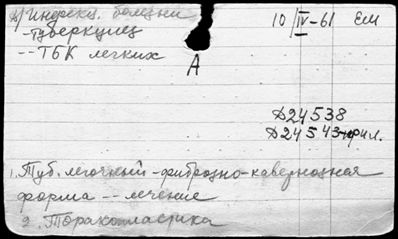 А/ Инфекц. болезни 10/IV-61 ЕМ
-туберкулез
--ТБК легких
А
Д24538
Д24543-прил.
1. Туб. легочный-фиброзно-кавернозная
форма -- лечение
2. Торакопластика